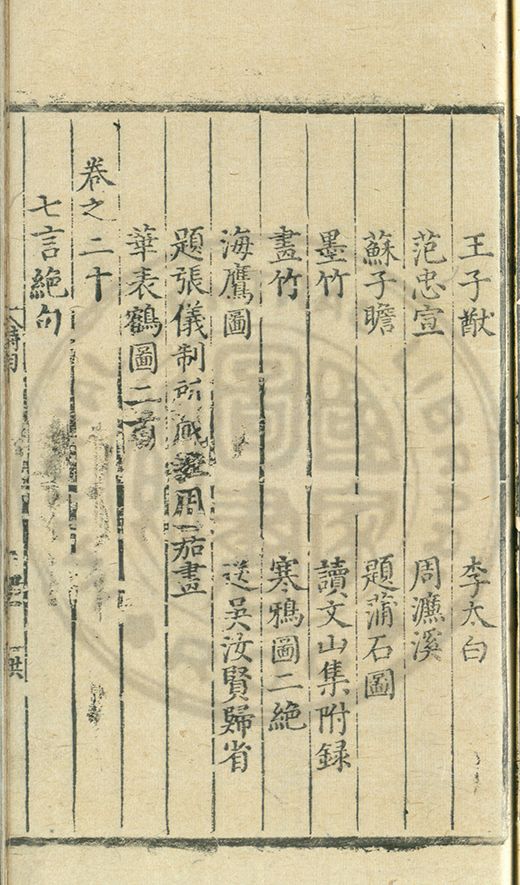 王子猷 李太白
范忠宣 周濂溪
蘇子瞻 題蒲石圖
墨竹 讀文山集附録
畫竹 寒鴉圖二絶
海鷹圖 送吳汝賢歸省
題張儀制所藏 茄畫
華表鶴圖二首
卷之二十
七言絶句